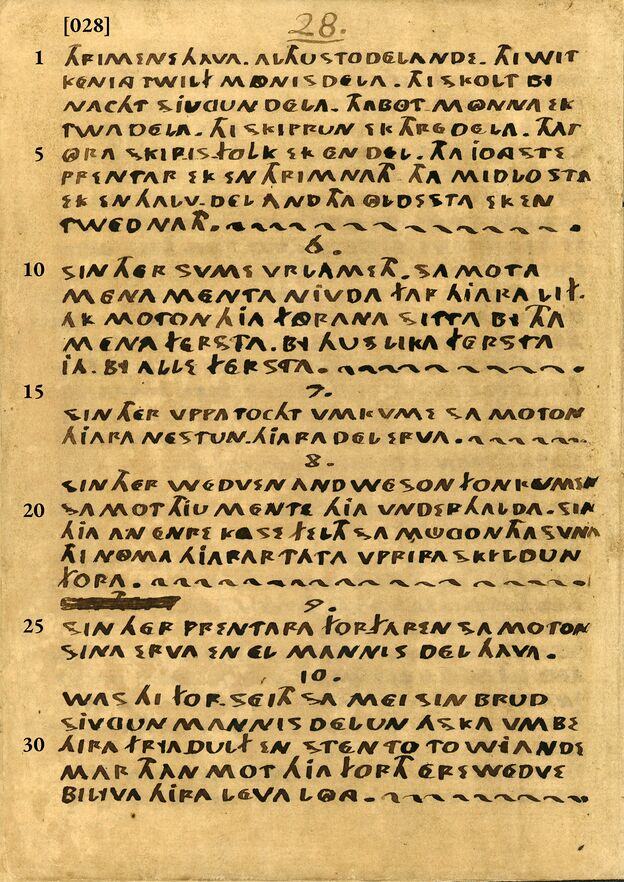 [028] 28.
1 THRIMENES HAVA. ALHUS TO DELANDE. THI WIT
KENING TWILIF MONNIS DELA. THI SKOLT BI
NACHT SIUGUN DELA. THA BOTMONNA EK
TWA DELA. THI SKIPRUN EK THRE DELA. THAT
5 ORA SKIPIS.FOLK EK EN DEL. THA JONGSTE
PRENTAR EK EN THRIMNATH. THA MIDLOSTA
EK EN HALV-DEL AND THA OLDSSTA EK EN
TWEDNATH.
6.
10 SIN THER SUME VRLAMETH. SA MOT A
MENA MENTA NIUDA FAR HIARA LIF.
AK MOTON HIA FORANA SITTA BI THA
MENA FERSTA. BI HUSLIKA FERSTA
JA. BI ALLE FERSTA.
15 7.
SIN THER UPPA TOCHT UMKUME SA MOTON
HIARA NESTUN.HIARA DEL ERVA.
8.
SIN THER WEDVEN AND WESON FON KUMEN
20 SA MOT THIU MENTE HIA UNDERHALDA. SIN
HIA AN ENRE KASE FELTH SA MUGON THA SUNA
THI NOMA HIARAR TATA UPPIRA SKELDUN
FORA.
9.
25 SIN THER PRENTARA FORFAREN SA MOTON
SINA ERVA EN EL MANNIS DEL HAVA.
10.
WAS HI FOR.SEITH SA MEI SIN BRUD
SIUGUN MANNIS DELUN ASKA UMBE
30 HIRA FRIADULF EN STEN TO TO WIANDE
MAR THAN MOT HIA FORTH ERE WEDVE
BILIVA HIRA LEVA LONG.